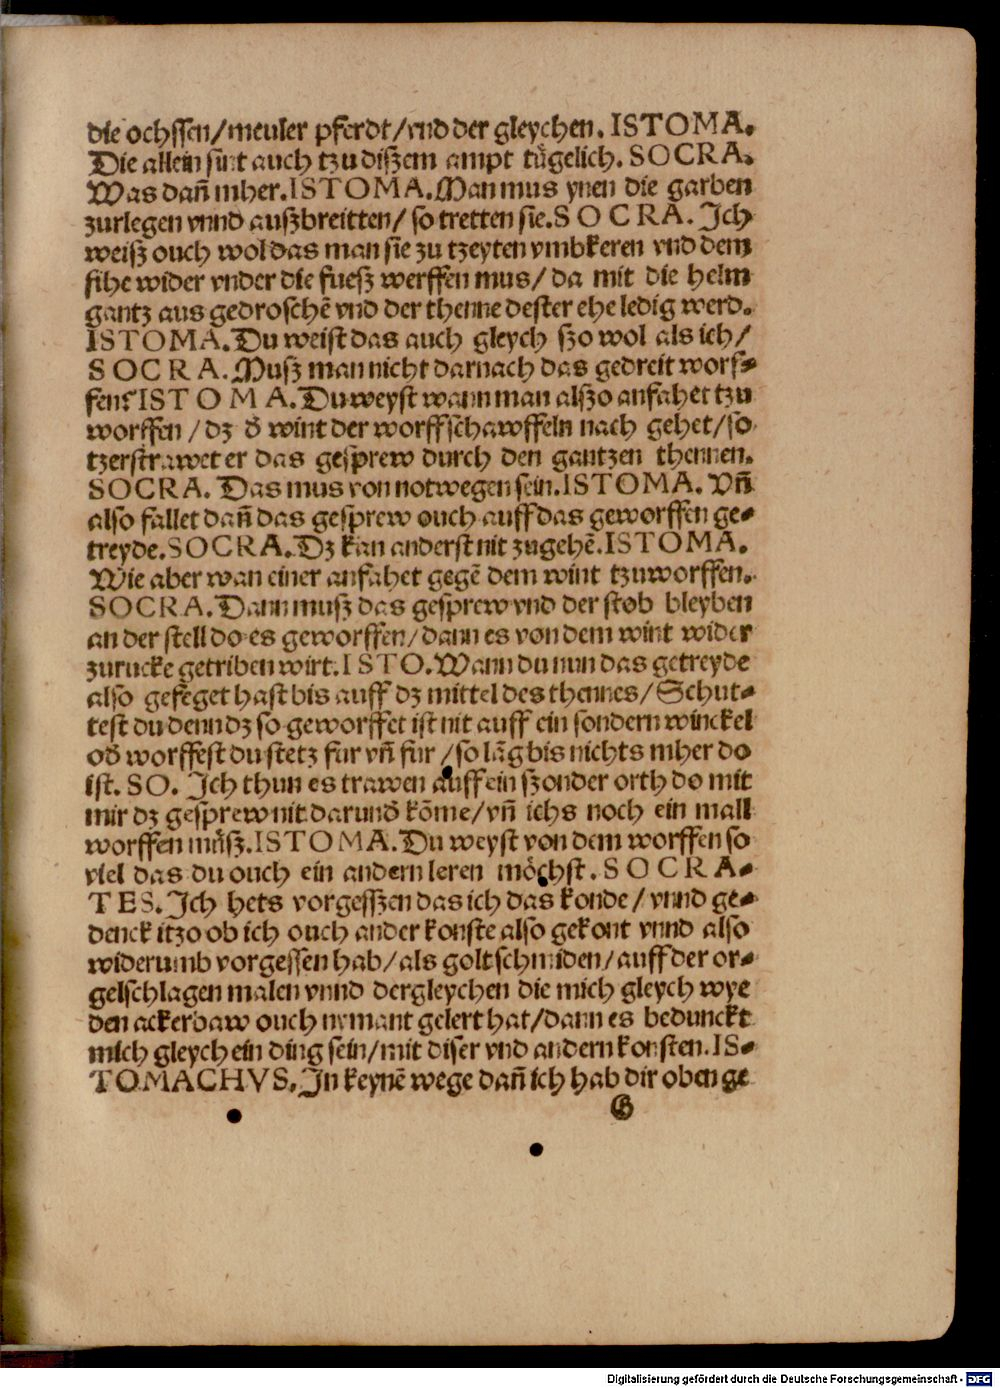 die ochssen/meuler pferdt/vnd der gleychen. ISTOMA.
Die allein sint auch tzu diszem ampt tuͤgelich. SOCRA.
Was dañ mher. ISTOMA. Man mus ynen die garben
zurlegen vnnd auszbreitten/ so tretten sie. SOCRA. Ich
weisz ouch wol das man sie zu tzeyten vmbkeren vnd dem
fihe wider vnder die fuesz werffen mus/ da mit die helm
gantz aus gedroschē vnd der thenne dester ehe ledig werd.
ISTOMA. Du weist das auch gleych szo wol als ich/
SOCRA. Musz man nicht darnach das gedreit worf⸗
fen? ISTOMA. Du weyst wann man alszo anfahet tzu
worffen /dz d̄ wint der worffschawffeln nach gehet/so
tzerstrawet er das gesprew durch den gantzen thennen.
SOCRA. Das mus von notwegen sein. ISTOMA. Vñ
also fallet dañ das gesprew ouch auff das geworffen ge⸗
treyde. SOCRA. Dz kan anderst nit zugehē. ISTOMA.
Wie aber wan einer anfahet gegē dem wint tzuworffen.
SOCRA. Dann musz das gesprew vnd der stob bleyben
an der stell do es geworffen/ dann es von dem wint wider
zurucke getriben wirt. ISTO. Wann du nun das getreyde
also gefeget hast bis auff dz mittel des thennes/ Schut⸗
test du denn dz so geworffet ist nit auff ein sondern winckel
od̄ worffest du stetz fur vñ fur /so lāg bis nichts mher do
ist. SO. Ich thun es trawen auff ein szonder orth do mit
mir dz gesprew nit darund̄ kōme/ vñ ichs noch ein mall
worffen muͤsz. ISTOMA. Du weyst von dem worffen so
viel das du ouch ein andern leren moͤchst. SOCRA⸗
TES. Ich hets vorgesszen das ich das konde/ vnnd ge⸗
denck itzo ob ich ouch ander konste also gekont vnnd also
widerumb vorgessen hab/als goltschmiden/ auff der or⸗
gelschlagen malen vnnd dergleychen die mich gleych wye
den ackerbaw ouch nymant gelert hat/dann es bedunckt
mich gleych ein ding sein/mit diser vnd andern konsten. IS⸗
TOMACHVS. In keynē wege dañ ich hab dir oben ge
G
Digitalisierung gefördert durch die Deutsche Forschungsgemeinschaft - DFG